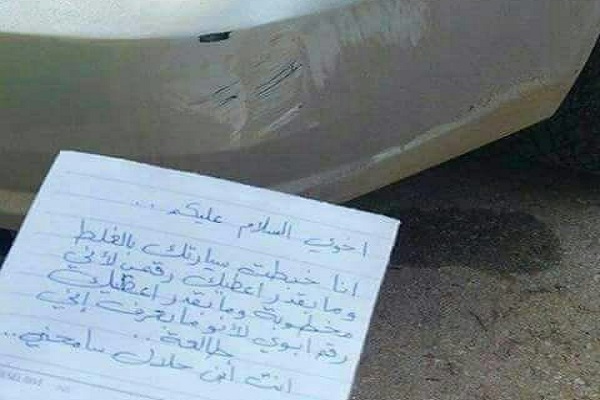 اخوي السلام عليكم ..
انا خبطت سيارتك بالغلط
وما بقدر اعطيك رقمي لأني
مخطوبة وما بقدر اعطيك
رقم ابوي لأنو ما بعرف إني
طالعة ..
انت ابن حلال سامحني ..